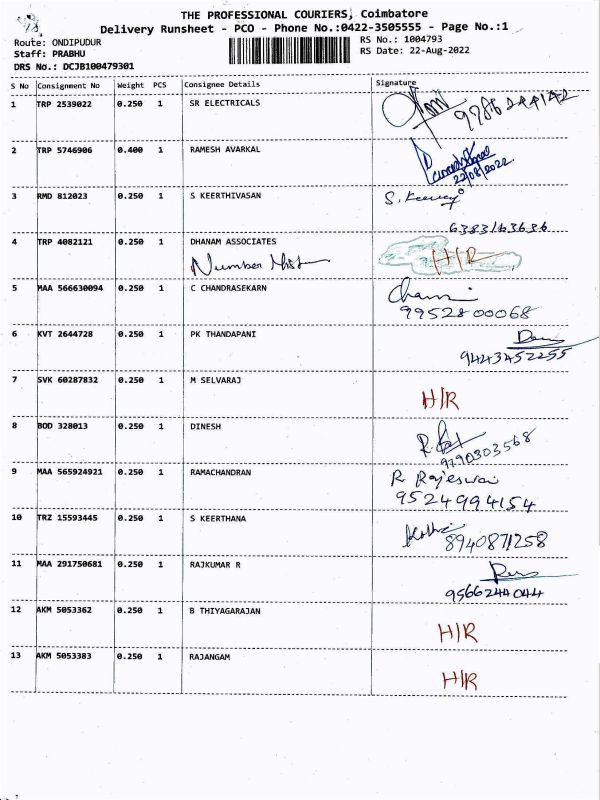 THE PROFESSIONAL COURIERS, Coimbatore
Delivery Runsheet - PCO - Phone No.:0422-3505555 - Page No.:1
Route: ONDIPUDUR RS No.: 1004793
Staff: PRABHU RS Date: 22-Aug-2022
DRS No.: DCJB100479301
S No Consignment No Weight PCS Consignee Details Signature
1 TRP 2539022 0.250 1 SR ELECTRICALS
2 TRP 5746906 0.400 1 RAMESH AVARKAL
22/08/2022
3 RMD 812023 0.250 1 S KEERTHIVASAN S.
6383163636
4 TRP 4082121 0.250 1 DHANAM ASSOCIATES H/R
Number
5 MAA 566630094 0.250 1 C CHANDRASEKARN
9952800068
6 KVT 2644728 0.250 1 PK THANDAPANI
9443452255
7 SVK 60287832 0.250 1 M SELVARAJ
H/R
8 BOD 328013 0.250 1 DINESH
9790303568
9 MAA 565924921 0.250 1 RAMACHANDRAN R Rajeswari
9524994154
10 TRZ 15593445 0.250 1 S KEERTHANA
8940871258
11 MAA 291750681 0.250 1 RAJKUMAR R
9566244044
12 AKM 5053362 0.250 1 B THIYAGARAJAN
H/R
13 AKM 5053383 0.250 1 RAJANGAM
H/R